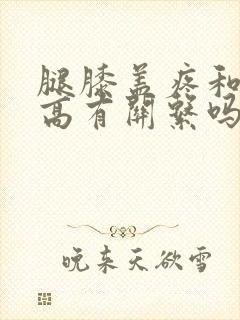 腿膝盖疼和
高有关系吗
晚来天欲雪